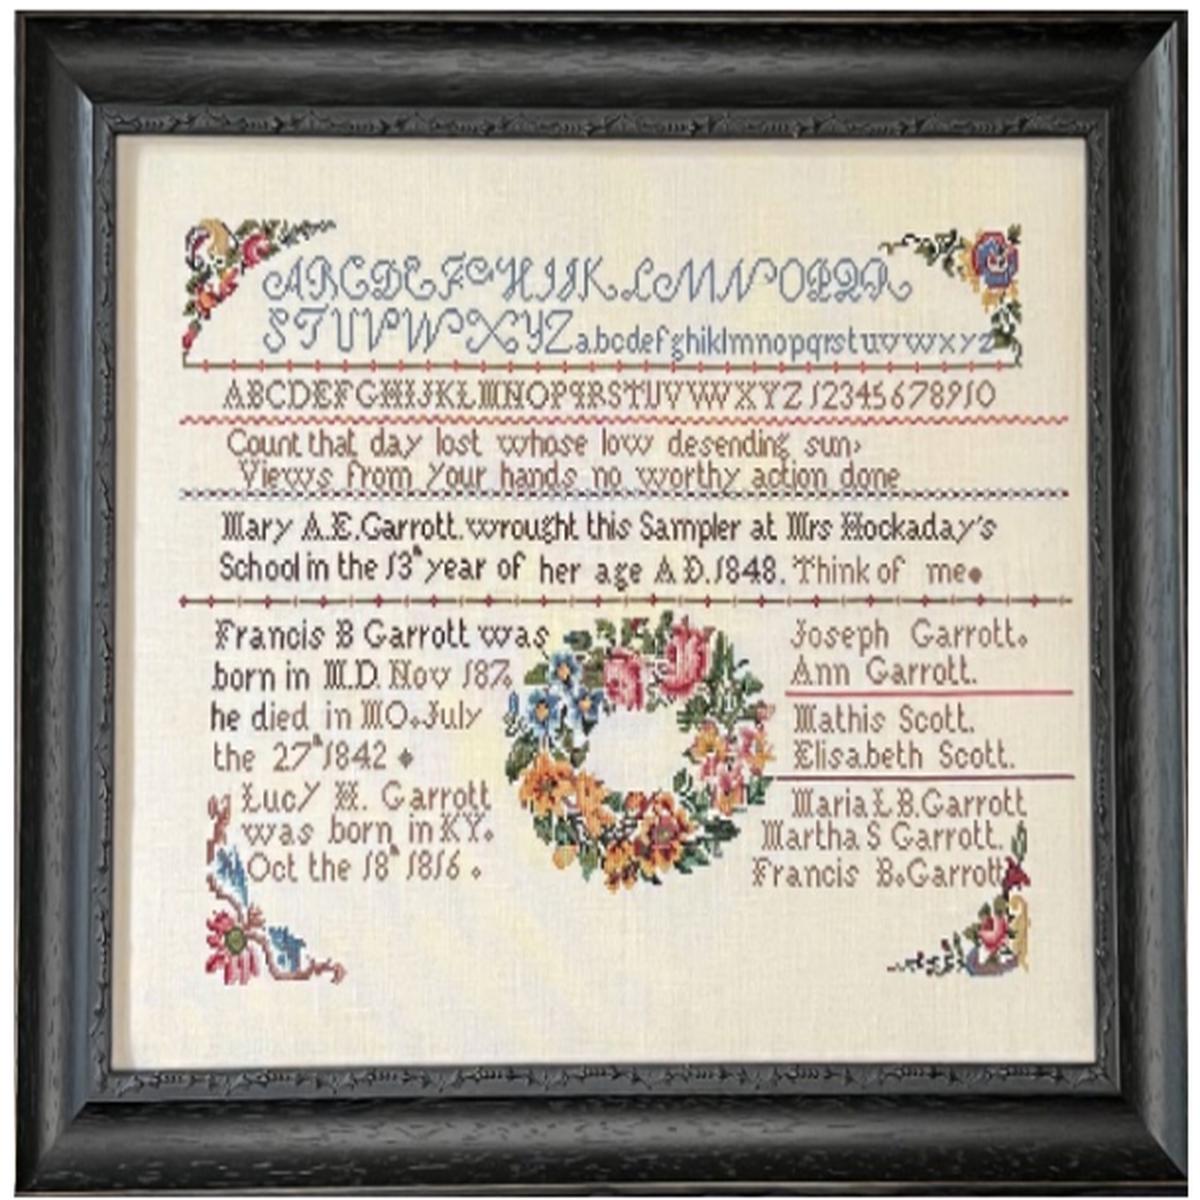 ABCDEFGHIJKLMNOPQR
STUVWXYZabcdefghiklmnopqrstuvwxyz
ABCDEFGHIJKLMNOPQRSTUVWXYZ12345678910
Count that day lost whose low desending sun,
Views from your hands no worthy action done
Mary A.E.Garrott.wrought this Sampler at Mrs Hockaday's
School in the 13th year of her age A.D.1848. Think of me.
Francis B Garrott was
born in M.D. Nov
he died in MO. July
the 27th 1842
Lucy H. Garrott
was born in KY.
Oct the 18th 1816.
Joseph Garrott.
Ann Garrott.
Mathis Scott.
Elisabeth Scott.
Maria L B.Garrott
Martha S Garrott.
Francis B.Garrott